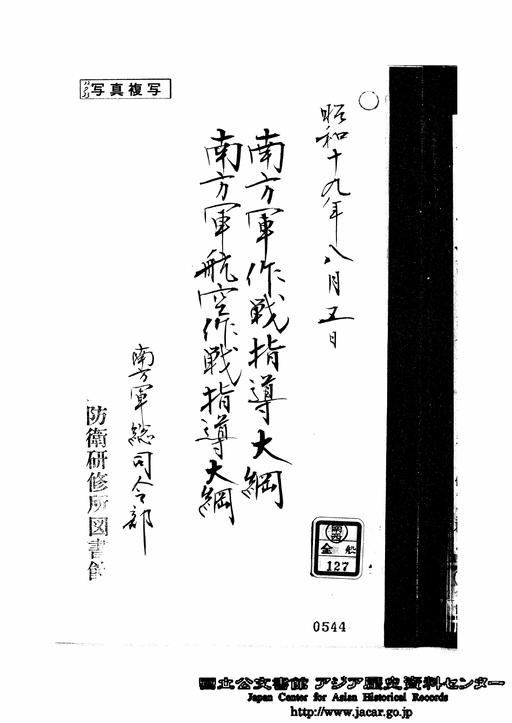 写真複写
昭和十九年八月五日
南方軍作戦指導大綱
南方軍航空作戦指導大綱
南方軍総司令部
防衛研修所図書館
南西
全般
127
0544
国立公文書館 アジア歴史資料センター
Japan Center for Asian Historical Records
http://www.jacar.go.jp